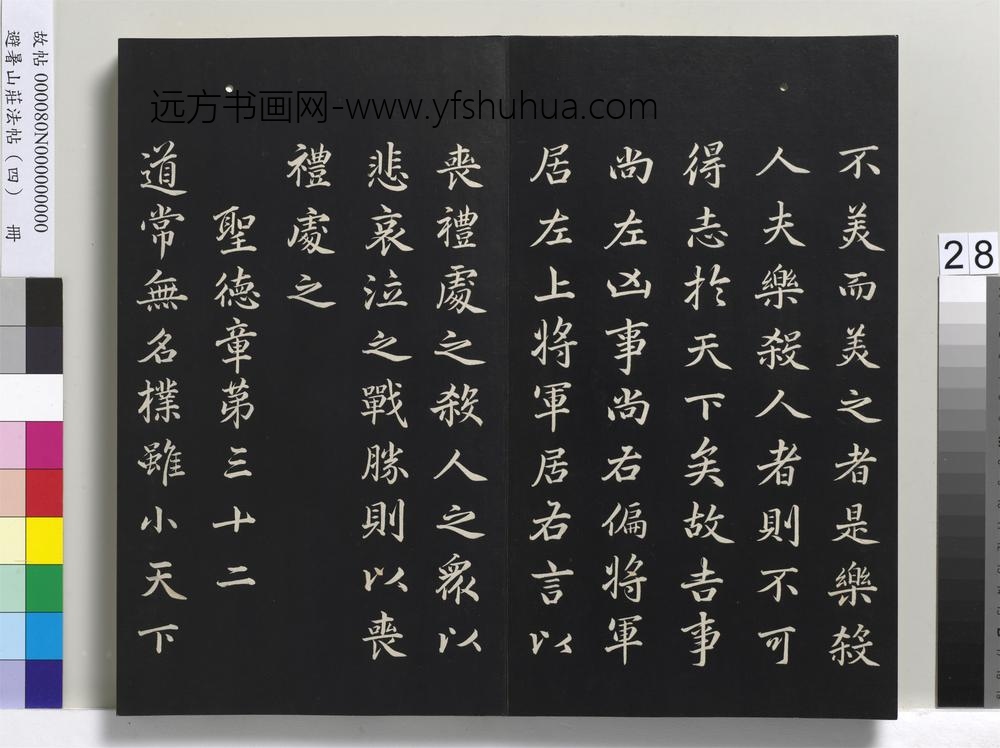 不美而美之者是樂殺
人夫樂殺人者則不可
得志於天下矣故吉事
尚左凶事尚右偏將軍
居左上將軍居右言以
喪禮處之殺人之衆以
悲哀泣之戰勝則以喪
禮處之
聖德章第三十二
道常無名樸雖小天下
远方书画网-www.yfshuhua.com
故帖 000080N000000000
避暑山莊法帖（四） 冊
28